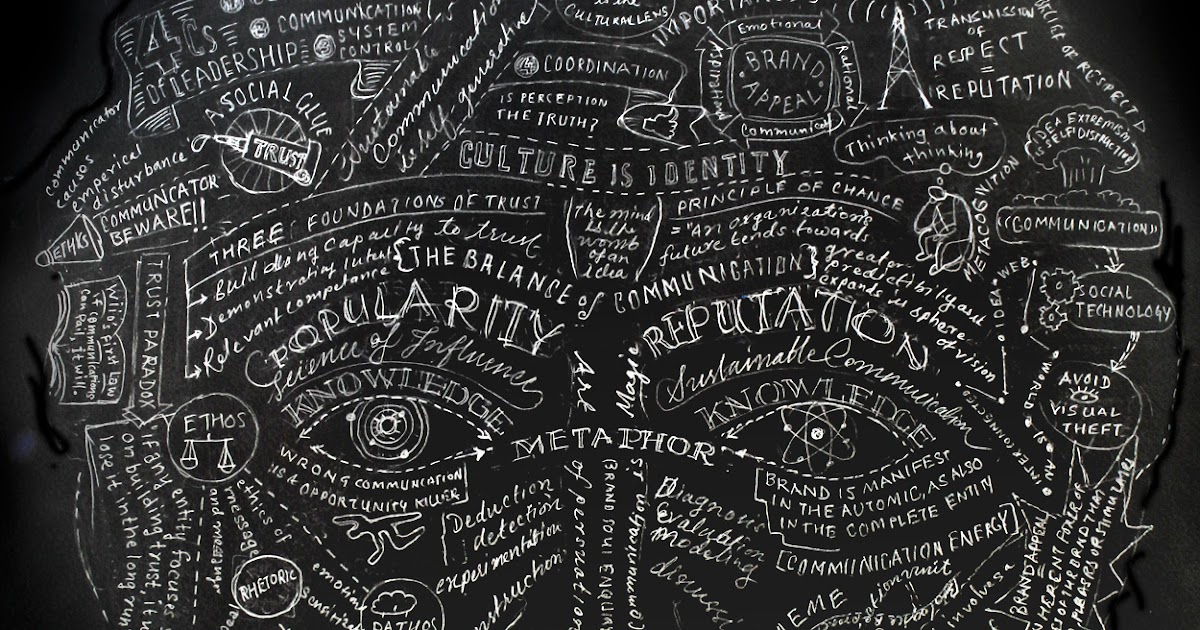 4Cs
OF LEADERSHIP
COMMUNICATION
SYSTEM
CONTROL
Sustainable
Communication
is self generative
CULTURAL LENS
COORDINATION
IS PERCEPTION
THE TRUTH?
Emotional
Rational
BRAND
APPEAL
TRANSMISSION
OF
RESPECT
=
REPUTATION
CYCLE OF RESPECT
communicator
causes
emperical
disturbance
COMMUNICATOR
BEWARE!!
ETHICS
A SOCIAL GLUE
TRUST
CULTURE IS IDENTITY
Thinking about
thinking
METACOGNITION
IDEA EXTREMISM
IS SELF DISTRUCTIVE
"COMMUNICATION"
SOCIAL
TECHNOLOGY
AVOID
VISUAL
THEFT
THREE FOUNDATIONS OF TRUST
Building capacity to trust
Demonstrating intent
Relevant competance
the mind
is the
womb
of an
idea
PRINCIPLE OF CHANCE
= "An organization's
future tends towards
greater predictibility as it
expands its sphere of vision
{THE BALANCE of COMMUNICATION}
POPULARITY
REPUTATION
Science of Influence
Sustainable Communication
KNOWLEDGE
KNOWLEDGE
Art
Magic
METAPHOR
IDEA WEB
WORLD IS AN INTERCONNECTED
TRUST PARADOX
Wiio's first Law
if communication
can fail, it will.
IF ANY entity focuses
on building trust, it
lose it in the long run
ETHOS
ethics of
message
and messenger
RHETORIC
emotional
PATHOS
WRONG COMMUNICATION
IS A OPPORTUNITY KILLER
Deduction
detection
experimentation
construction
of persuation
Diagnosis
Evaluation
Modeling
BRAND IS MANIFEST
IN THE AUTOMIC, AS ALSO
IN THE COMPLETE ENTITY
[COMMUNICATION ENERGY]
MEME
BRAND APPEAL